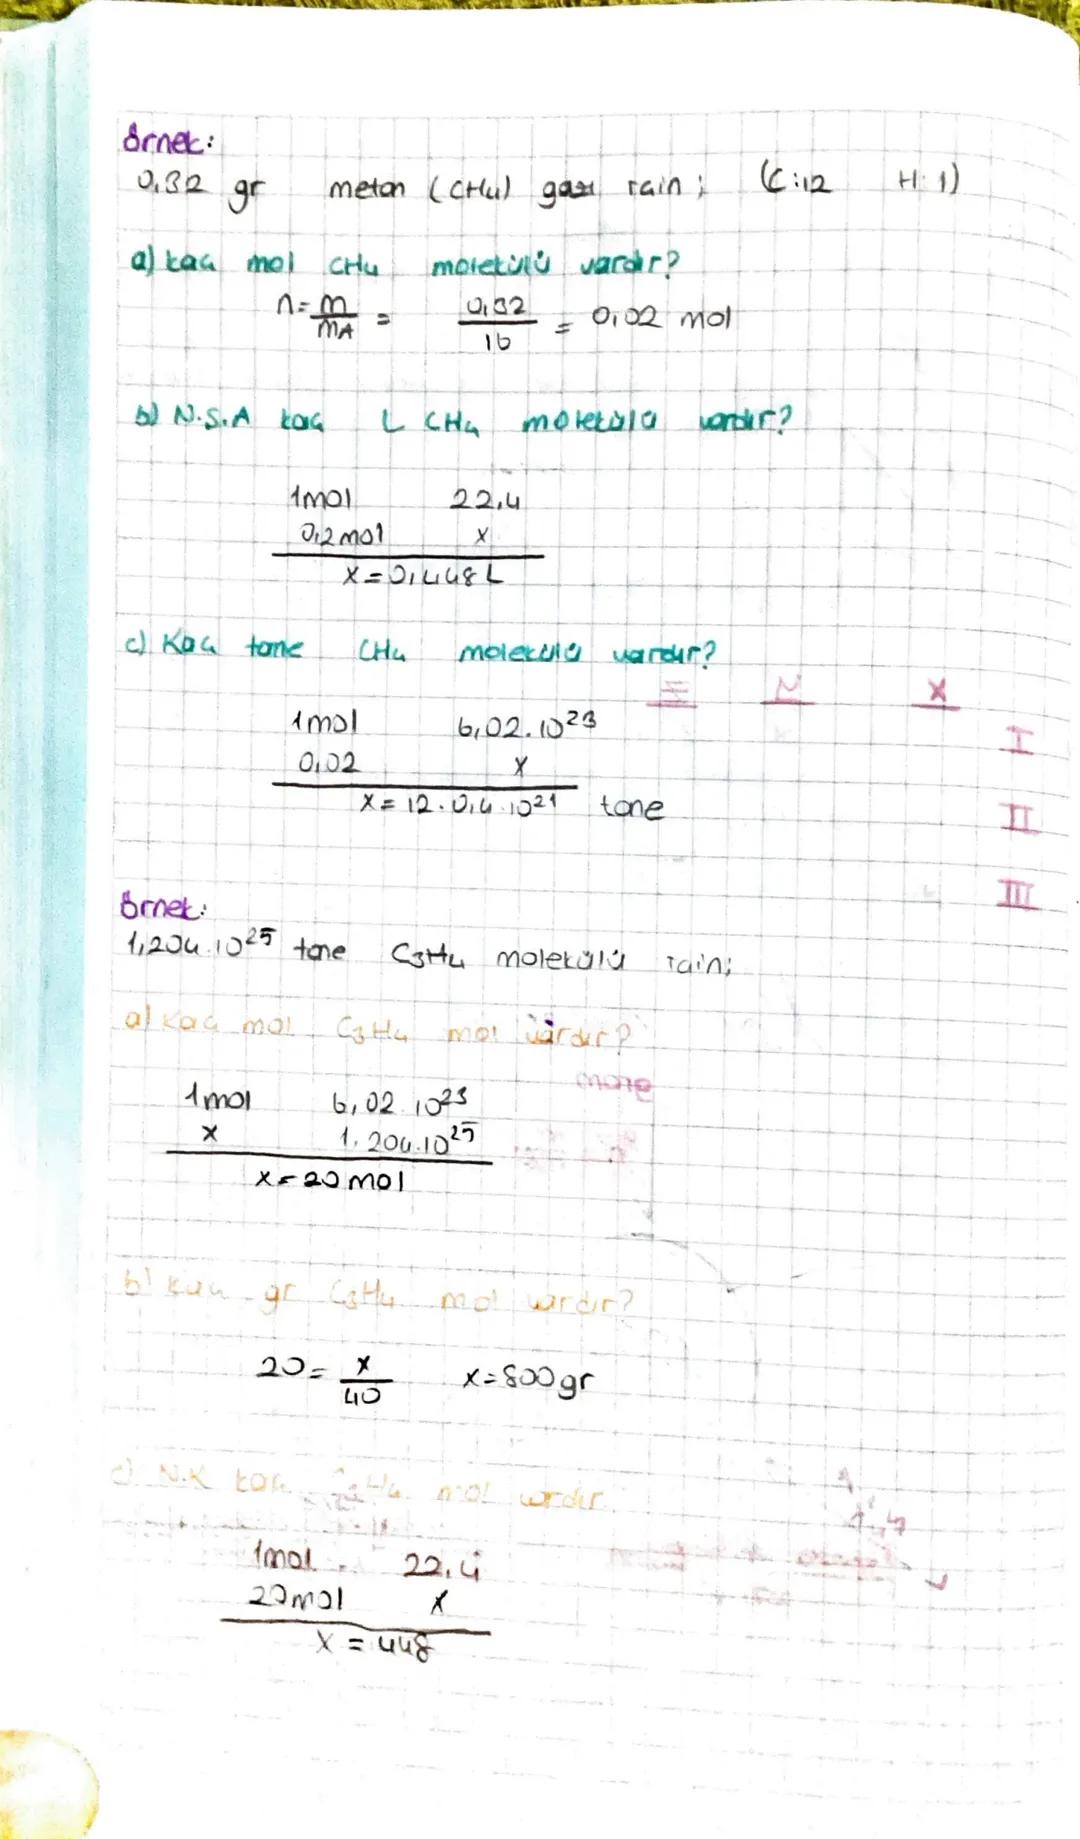 Örnek:
0,32 gr metan (CH4) gazı için; (C:12 H:1)
a) kaç mol CH4 molekülü vardır?
n=m/mA = 0,32/16 = 0,02 mol
b) N.Ş.A kaç L CH4 molekülü vardır?
1mol 22,4
0,2mol x
x=0,448L
c) Kaç tane CH4 molekülü vardır?
1mol 6,02.10²³
0,02 x
x= 12.0,4.10²¹ tane
Örnek:
1,204.10²⁵ tane C3H4 molekülü için;
a) kaç mol C3H4 mol vardır?
1mol 6,02.10²³
x 1,204.10²⁵
x=20mol
b) kaç gr C3H4 mol vardır?
20= x/40 x=800gr
c) N.K kaç C3H4 mol vardır
1mol 22,4
20mol x
x=448